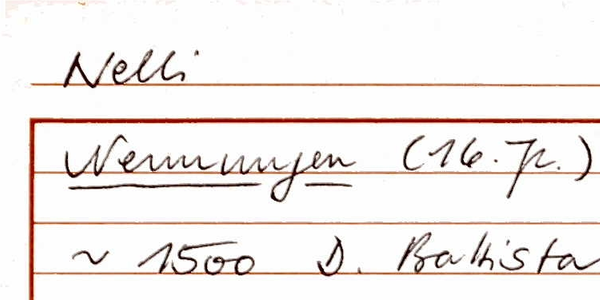 Nelli
Nennungen (16. Jh.)
~ 1500 D. Battista